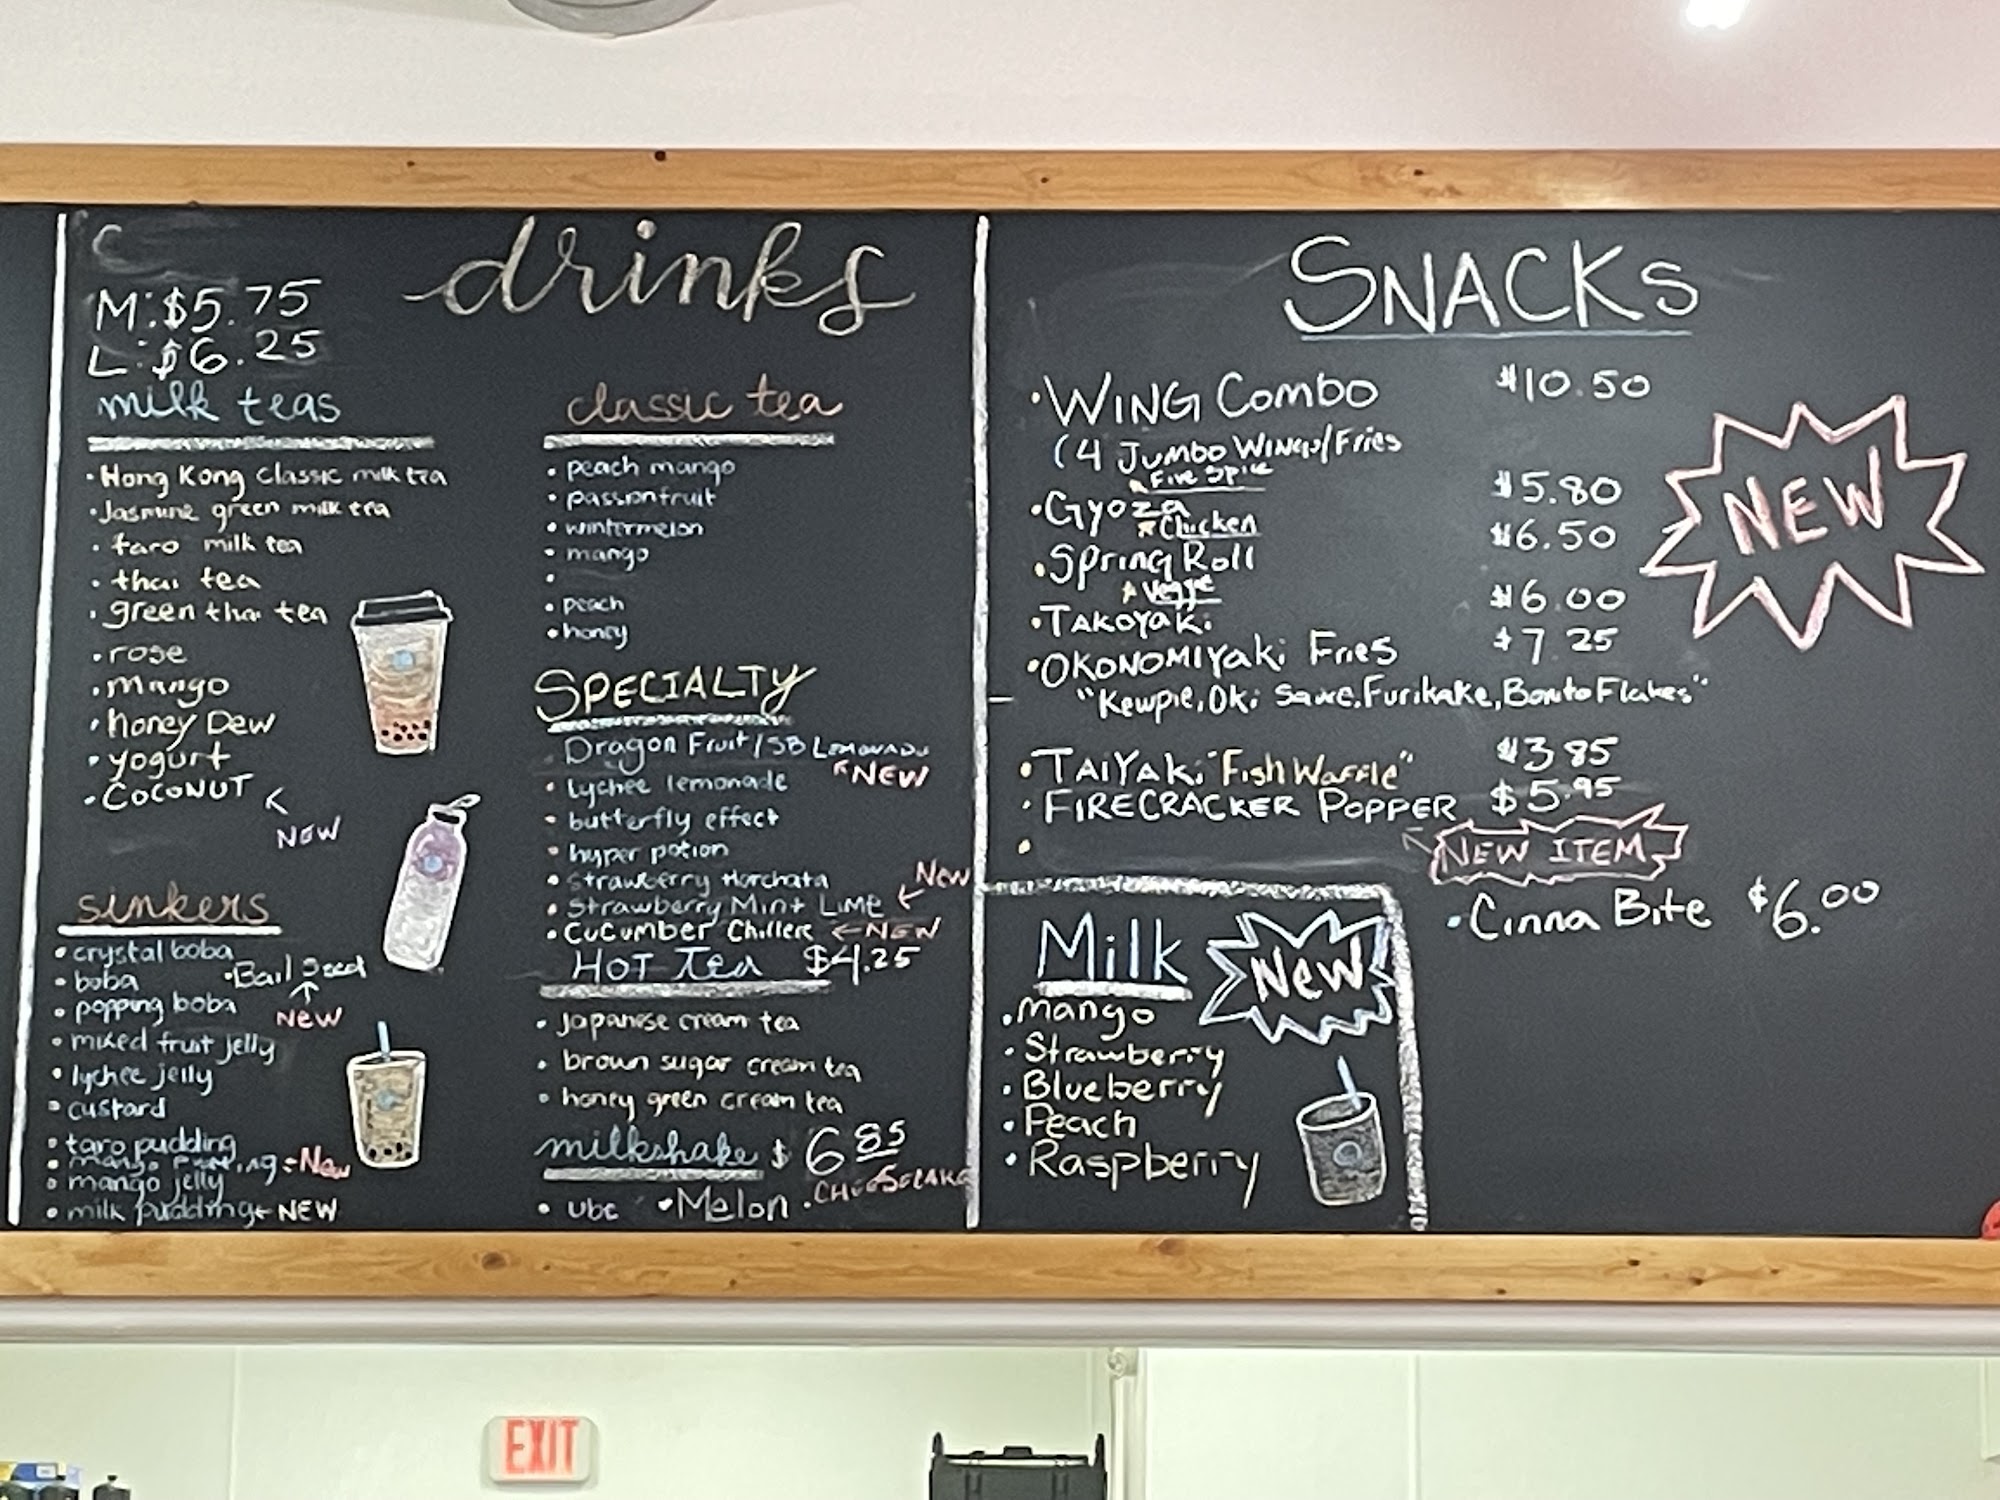 drinks
M: $5.75
L: $6.25
milk teas
• Hong Kong Classic milk tea
• Jasmine green milk tea
• taro milk tea
• thai tea
• green thai tea
• rose
• mango
• honey Dew
• yogurt
• COCONUT
NEW
sinkers
• crystal boba
• boba
• Basil Seed
NEW
• popping boba
• mixed fruit jelly
• lychee jelly
• custard
• taro pudding
• mango pudding New
• mango jelly
• milk pudding NEW
classic tea
• peach mango
• passionfruit
• wintermelon
• mango
•
• peach
• honey
SPECIALTY
Dragon Fruit/SB LEMONADE
NEW
• lychee lemonade
• butterfly effect
• hyper potion
• Strawberry Horchata
• Strawberry Mint LIME New
• CUCUMBER Chiller NEW
HOT Tea $4.25
• japanese cream tea
• brown sugar cream tea
• honey green cream tea
milkshake $6.85
• ube • Melon • CHEESECAKE
SNACKS
• WING Combo $10.50
(4 Jumbo Wings/Fries
Five Spice
• Gyoza $5.80
Chicken
• Spring Roll $6.50
Veggie
• TAKOYAKi $6.00
• OKONOMIYAKi Fries $7.25
"Kewpie, Oki Sauce, Furikake, Bonito Flakes"
• TAIYAKi "Fish Waffle" $3.85
• FIRECRACKER POPPER $5.95
•
NEW ITEM
• Cinna Bite $6.00
NEW
Milk
New
• Mango
• Strawberry
• Blueberry
• Peach
• Raspberry
EXIT